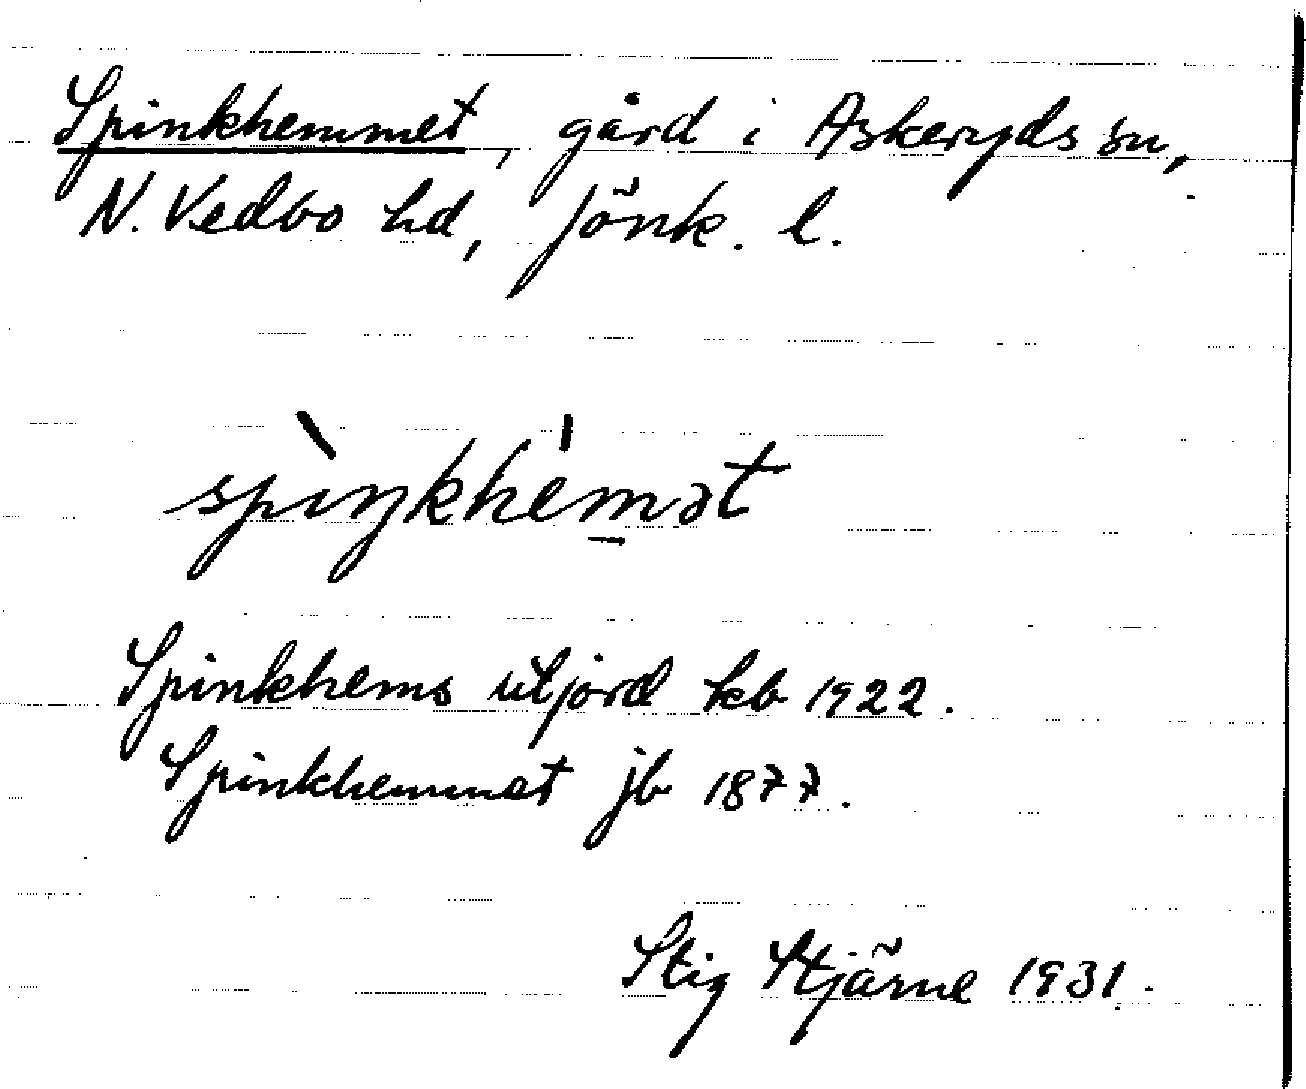 Spinkhemmet, gård i Askeryds sn,
N. Vedbo hd, Jönk. l.
spìŋkhém̱ət
Spinkhems utjord kb 1922.
Spinkhemmet jb 1877.
Stig Stjärne 1931.